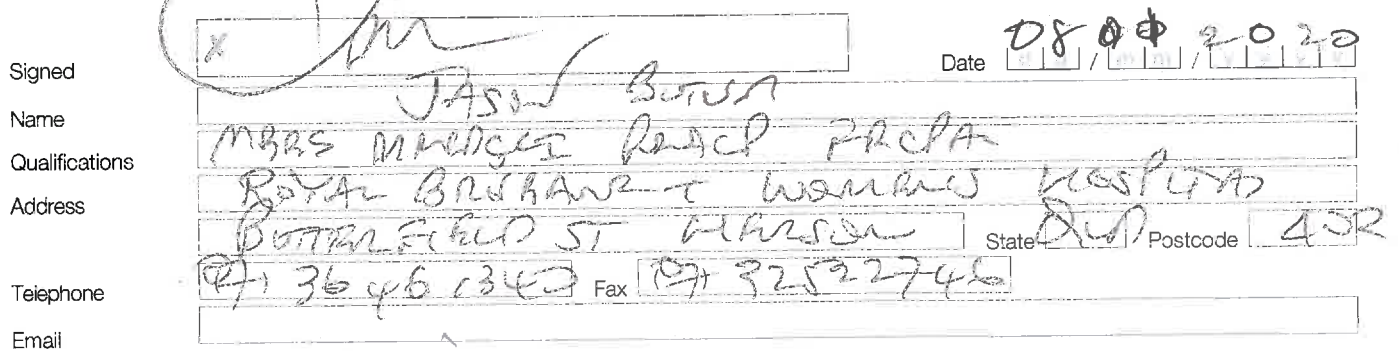 Signed x Date 08 / 01 / 2020
Name JASON BUTUSA
Qualifications MBBS MMEDSCI FRACP FRCPA
Address ROYAL BRISBANE + WOMENS HOSPITAL
BUTTERFIELD ST HERSTON State QLD Postcode
Telephone (07) 3646 1347 Fax (07) 32522746
Email